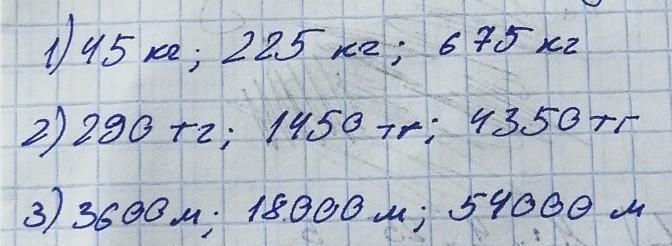 1) 45 кг; 225 кг; 675 кг
2) 290 тг; 1450 тг; 4350 тг
3) 3600 м; 18000 м; 54000 м